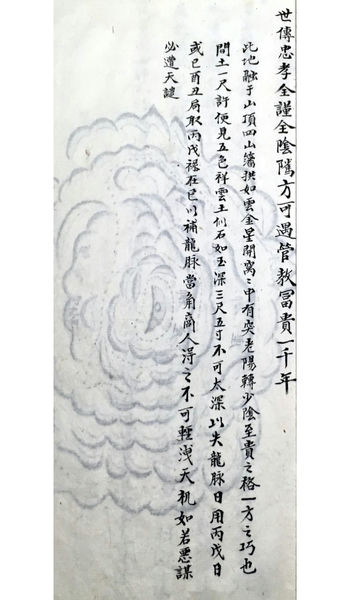 世傳忠孝全謹全陰隲方可遇管教冨貴一千年
此地融于山頂四山簫拱如雲金星開窩〻中有突老陽轉少陰至貴之格一方之巧也
問土一尺許便見五色祥雲土似石如玉深三尺五寸不可太深以失龍脉日用丙戊日
或巳酉丑局取丙戊祿在巳以補龍脉當角商人淂之不可輕洩天机如若悪謀
必遭天譴